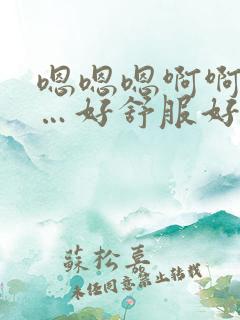 嗯嗯嗯啊啊
…好舒服好
蘇松喜
未经同意禁止转载